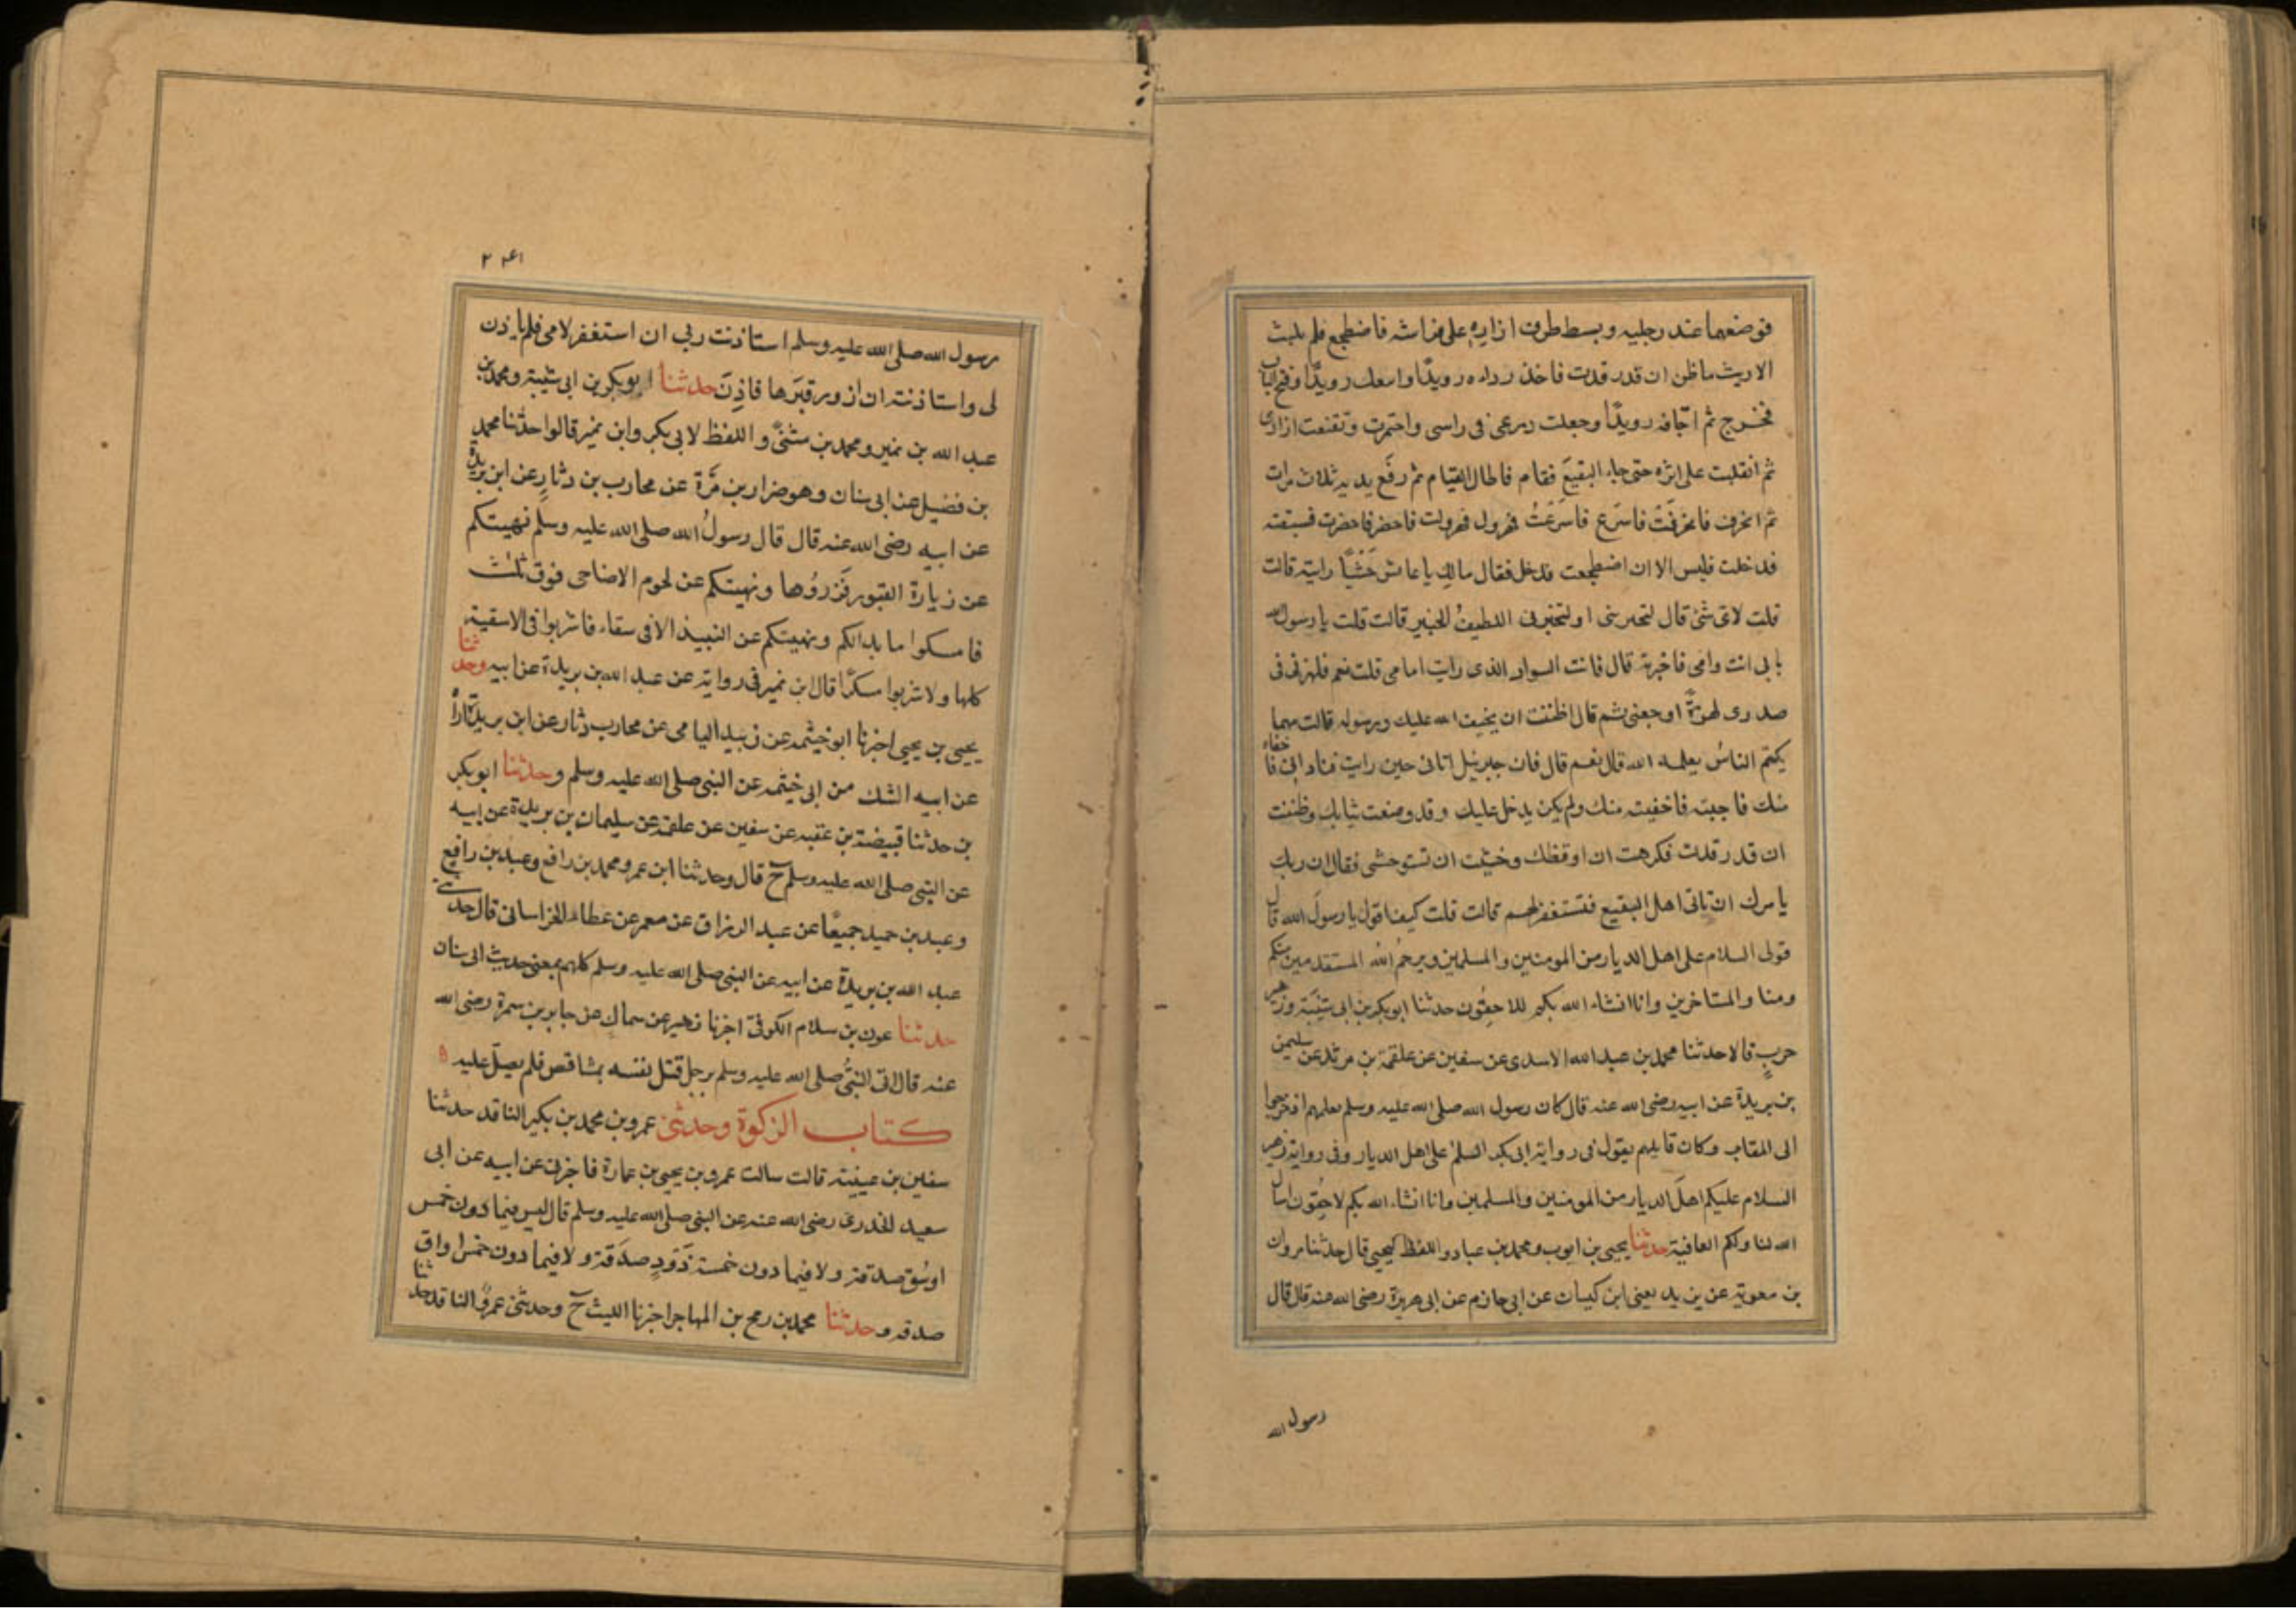 فوضعهما عند رجليه وبسط طرف ازاره على فراشه فاضطجع فلم يلبث
الا ريث ما ظن ان قد رقدت فاخذ رداءه رويدًا وانتعل رويدًا وفتح الباب
فخرج ثم اجافه رويدًا وجعلت درعى فى راسى واختمرت وتقنعت ازارى
ثم انقلبت على اثره حتى جاء البقيعَ فقام فاطال القيام ثم رفَع يديه ثلاث مرات
ثم انحرف فانحرفتُ فاسرَع فاسرَعتُ فهرول فهرولت فاحضر فاحضرت فسبقته
فدخلت فليس الا ان اضطجعت فدخل فقال مالكِ يا عائش حَشْيًا رابية قالت
قلت لاى شئ قال لتخبرينى او ليخبرنى اللطيفُ الخبير قالت قلت يا رسول الله
بابى انت وامى فاخبرته قال فانت السواد الذى رايت امامى قلت نعم فلهزنى فى
صدرى لهزةً اوجعنى ثم قال اظننت ان يحيف الله عليك ورسوله قالت مهما
يكتم الناسُ يعلمه الله قال نعم قال فان جبرئيل اتانى حين رايت فنادانى فاخفاه
منك فاجبته فاخفيته منك ولم يكن يدخل عليك وقد وضعت ثيابك وظننت
ان قد رقدت فكرهت ان اوقظك وخشيت ان تستوحشى فقال ان ربك
يامرك ان تاتى اهل البقيع فتستغفر لهم قالت قلت كيف اقول يا رسولَ الله قال
قولى السلام على اهل الديار من المومنين والمسلمين ويرحمُ الله المستقدمين منكم
ومنا والمستاخرين وانا انشاء الله بكم للاحِقُون حدثنا ابوبكر بن ابى شيبَة وزهير
حربٍ قالا حدثنا محمد بن عبد الله الاسدى عن سفين عن علقمة بن مرثد عن سليمن
بن بريدة عن ابيه رضى الله عنه قال كان رسول الله صلى الله عليه وسلم يعلمهم اذا خرجوا
الى المقابر وكان قايلهم يقول فى رواية ابى بكر السلمُ على اهل الديار وفى رواية زهير
السلام عليكم اهلَ الديار من المومنين والمسلمين وانا انشاء الله بكم لاحِقُون اسال
الله لنا ولكم العافية حدثنا يحيى بن ايوب ومحمد بن عباد واللفظ ليحيى قال حدثنا مروان
بن معوية عن يزيد يعنى ابن كيسان عن ابى حازم عن ابى هريرة رضى الله عنه قال قال
رسول الله
۲۴۱
رسول الله صلى الله عليه وسلم استاذنت ربى ان استغفر لامى فلم ياذن
لى واستاذنته ان ازور قبَرها فاذِنَ حدثنا ابوبكر بن ابى شيبة ومحمد بن
عبد الله بن نمير ومحمد بن مثنىًّ واللفظ لابى بكر وابن نمير قالوا حدثنا محمد
بن فضيل عن ابى سنان وهو ضرار بن مَّرة عن محارب بن دثارٍ عن ابن بريدة
عن ابيه رضى الله عنه قال قال رسولُ الله صلى الله عليه وسلم نهيتكم
عن زيارة القبور فَزروُها ونهيتكم عن لحوم الاضاحى فوق ثلث
فامسكوا ما بدا لكم ونهيتكم عن النبيذ الا فى سقاء فاشربوا فى الاسقية
كلها ولا تشربوا مسكرًا قال ابن نمير فى رواية عن عبد الله بن بريدة عن ابيه وحدثنا
يحيى بن يحيى اخبرنا ابوخيثمه عن زبيد اليامى عن محارب دثار عن ابن بريدة اراه
عن ابيه الشك من ابى خيثمه عن النبى صلى الله عليه وسلم وحدثنا ابوبكر
بن حدثنا قبيضة بن عقبه عن سفين عن علقمة عن سليمان بن بريدة عن ابيه
عن النبى صلى الله عليه وسلم ح قال وحدثنا ابن عمر ومحمد بن رافع وعبد بن رافع
وعبد بن حميد جميعًا عن عبد الرزاق عن معمر عن عطاء الخراسانى قال حدثنى
عبد الله بن بريدة عن ابيه عن النبى صلى الله عليه وسلم كلهم بمعنى حديث ابى سنان
حدثنا عون بن سلام الكوفىّ اخبرنا زهير عن سماك عن جابر بن سمرة رضى الله
عنه قال اتى النبىُّ صلى الله عليه وسلم برجل قتل نفسه بمشاقص فلم يصلّ عليه ه
كتاب الزكوة وحدثنى عمرو بن محمد بن بكير الناقد حدثنا
سفين بن عيينة قالت سالت عمرو بن يحيى بن عمارة فاخبرنى عن ابيه عن ابى
سعيد الخدرى رضى الله عنه عن النبى صلى الله عليه وسلم قال ليس فيما دون خمس
اوسُق صدقة ولا فيما دون خمسة ذَودٍ صدَقة ولا فيما دون خمس اواق
صدقه وحدثنا محمد بن رمح بن المهاجر اخبرنا الليث ح وحدثنى عمرو الناقد حدثنا